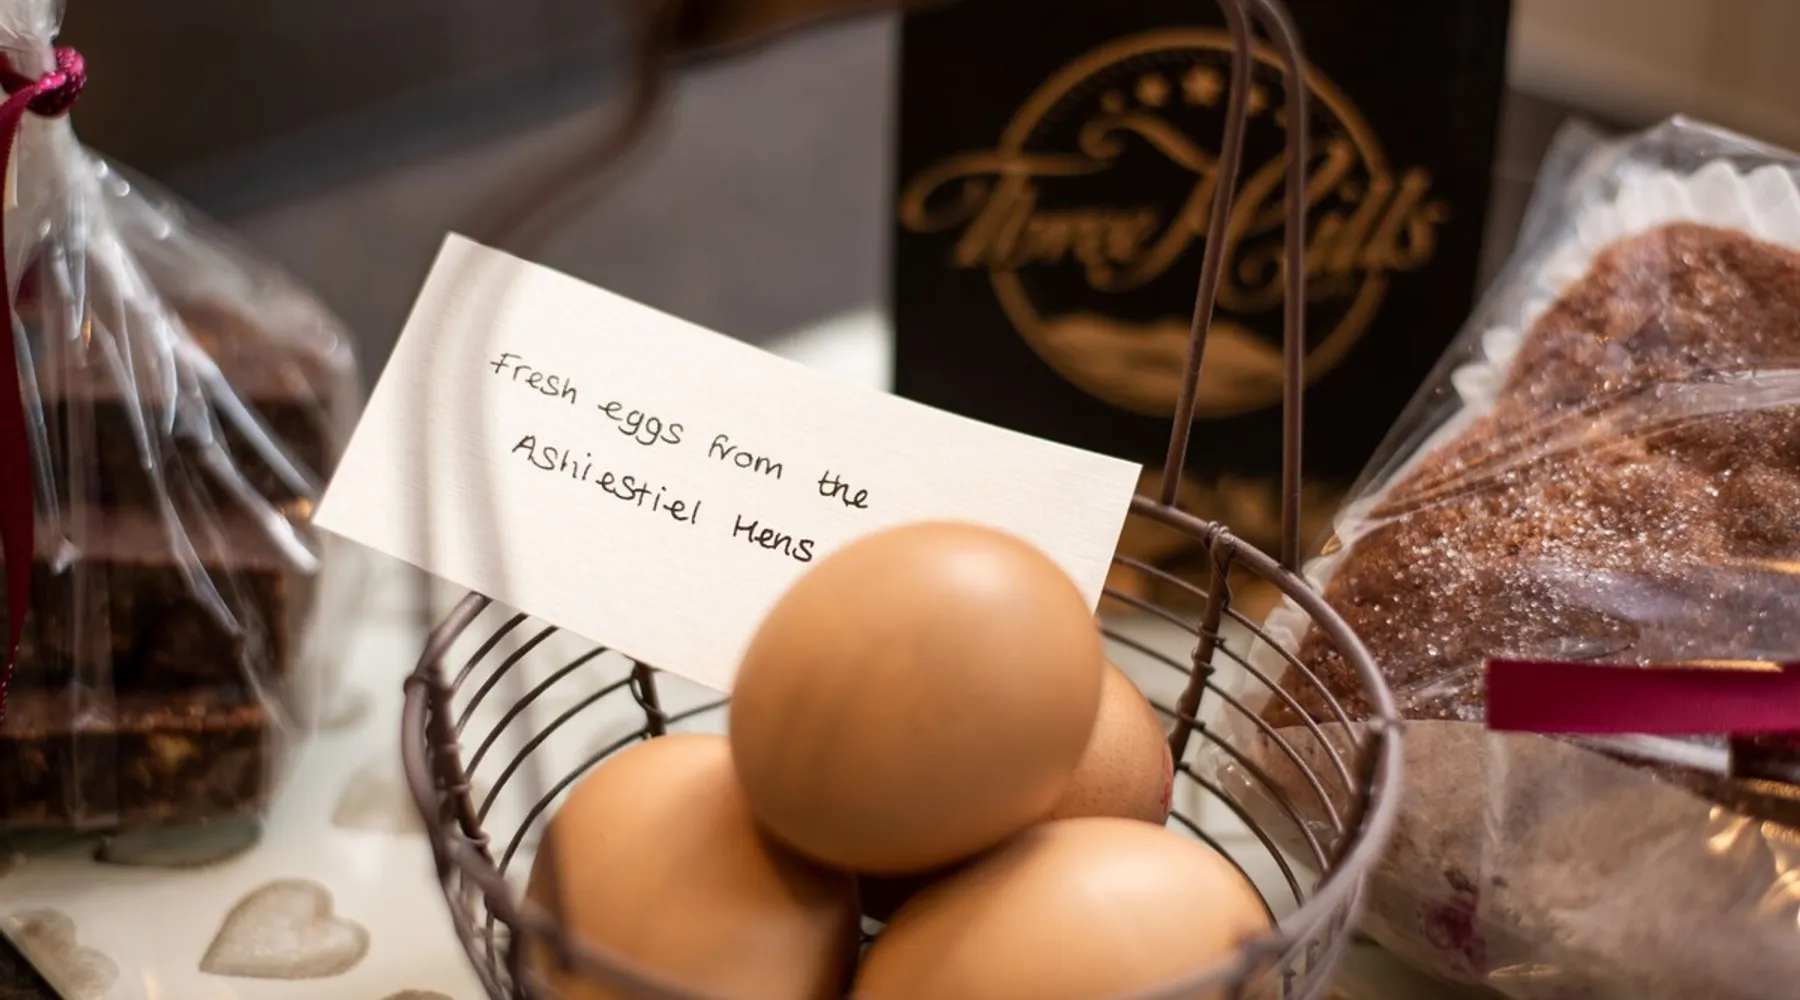 Three Hills
Fresh eggs from the
Ashiestiel Hens